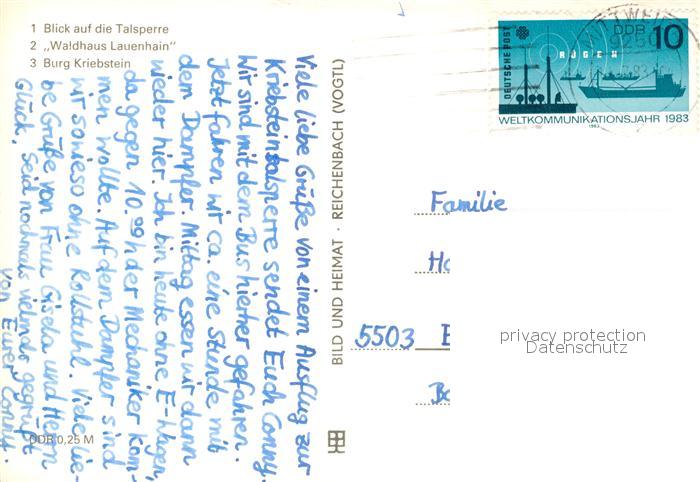 1 Blick auf die Talsperre
2 „Waldhaus Lauenhain"
3 Burg Kriebstein
Viele liebe Grüße von einem Ausflug zur
Kriebsteintalsperre sendet Euch Conny.
Wir sind mit dem Bus hierher gefahren.
Jetzt fahren wir ca. eine Stunde mit
dem Dampfer. Mittag essen wir dann
wieder hier. Ich bin heute ohne E-Wagen,
da gegen 10.00 h der Mechaniker kom-
men wollte. Auf dem Dampfer sind
wir sowieso ohne Rollstuhl. Viele lie-
be Grüße von Frau Gisela und Herrn
Glück. Seid nochmals vielmals gegrüßt
von Eurer Conny.
DDR 0,25 M
BILD UND HEIMAT · REICHENBACH (VOGTL)
DEUTSCHE POST
DDR 10
RÜGEN
WELTKOMMUNIKATIONSJAHR 1983
1983
Familie
5503
privacy protection
Datenschutz